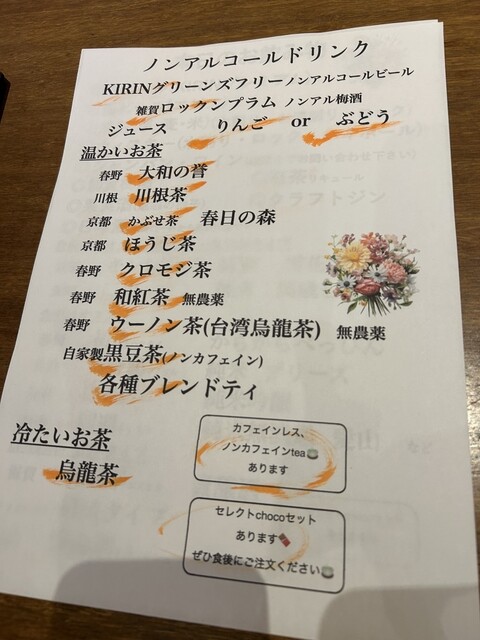 ノンアルコールドリンク
KIRINグリーンズフリーノンアルコールビール
雑賀ロックンプラム ノンアル梅酒
ジュース りんご or ぶどう
温かいお茶
春野 大和の誉
川根 川根茶
京都 かぶせ茶 春日の森
京都 ほうじ茶
春野 クロモジ茶
春野 和紅茶 無農薬
春野 ウーノン茶(台湾烏龍茶) 無農薬
自家製黒豆茶(ノンカフェイン)
各種ブレンドティ
冷たいお茶
烏龍茶
カフェインレス、
ノンカフェインtea🍵
あります
セレクトchocoセット
あります🍫
ぜひ食後にご注文ください🍵